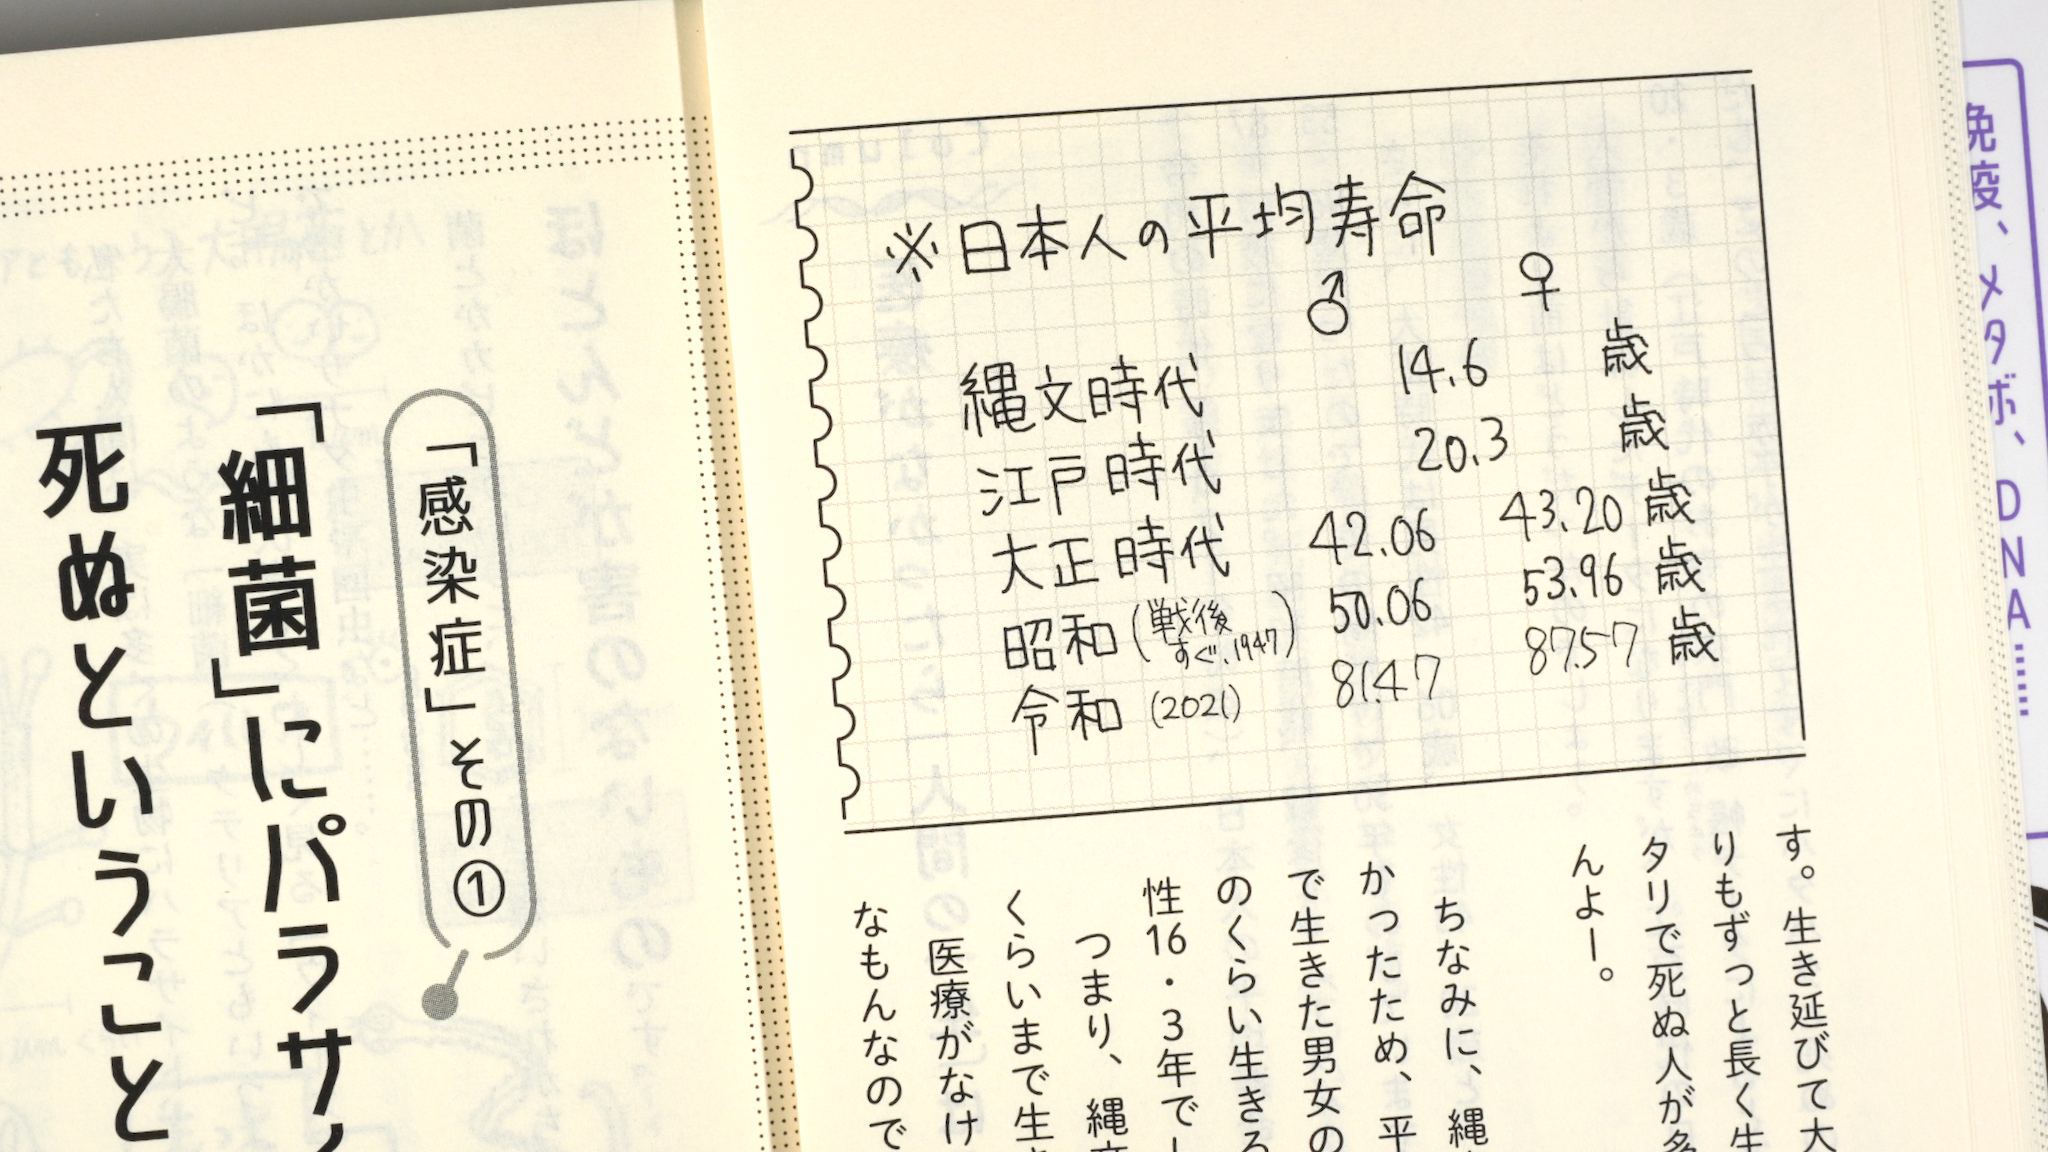 ※日本人の平均寿命
♂ ♀
縄文時代 14.6 歳
江戸時代 20.3 歳
大正時代 42.06 43.20 歳
昭和(戦後すぐ、1947) 50.06 53.96 歳
令和(2021) 81.47 87.57 歳
す。生き延びて大
りもずっと長く生
タリで死ぬ人が多
んよー。
ちなみに、縄
かったため、平
で生きた男女の
のくらい生きる
性16・3年でし
つまり、縄文
くらいまで生き
医療がなけ
なもんなので
「感染症」その①
「細菌」にパラサイ
死ぬということ
免疫、メタボ、DNA……